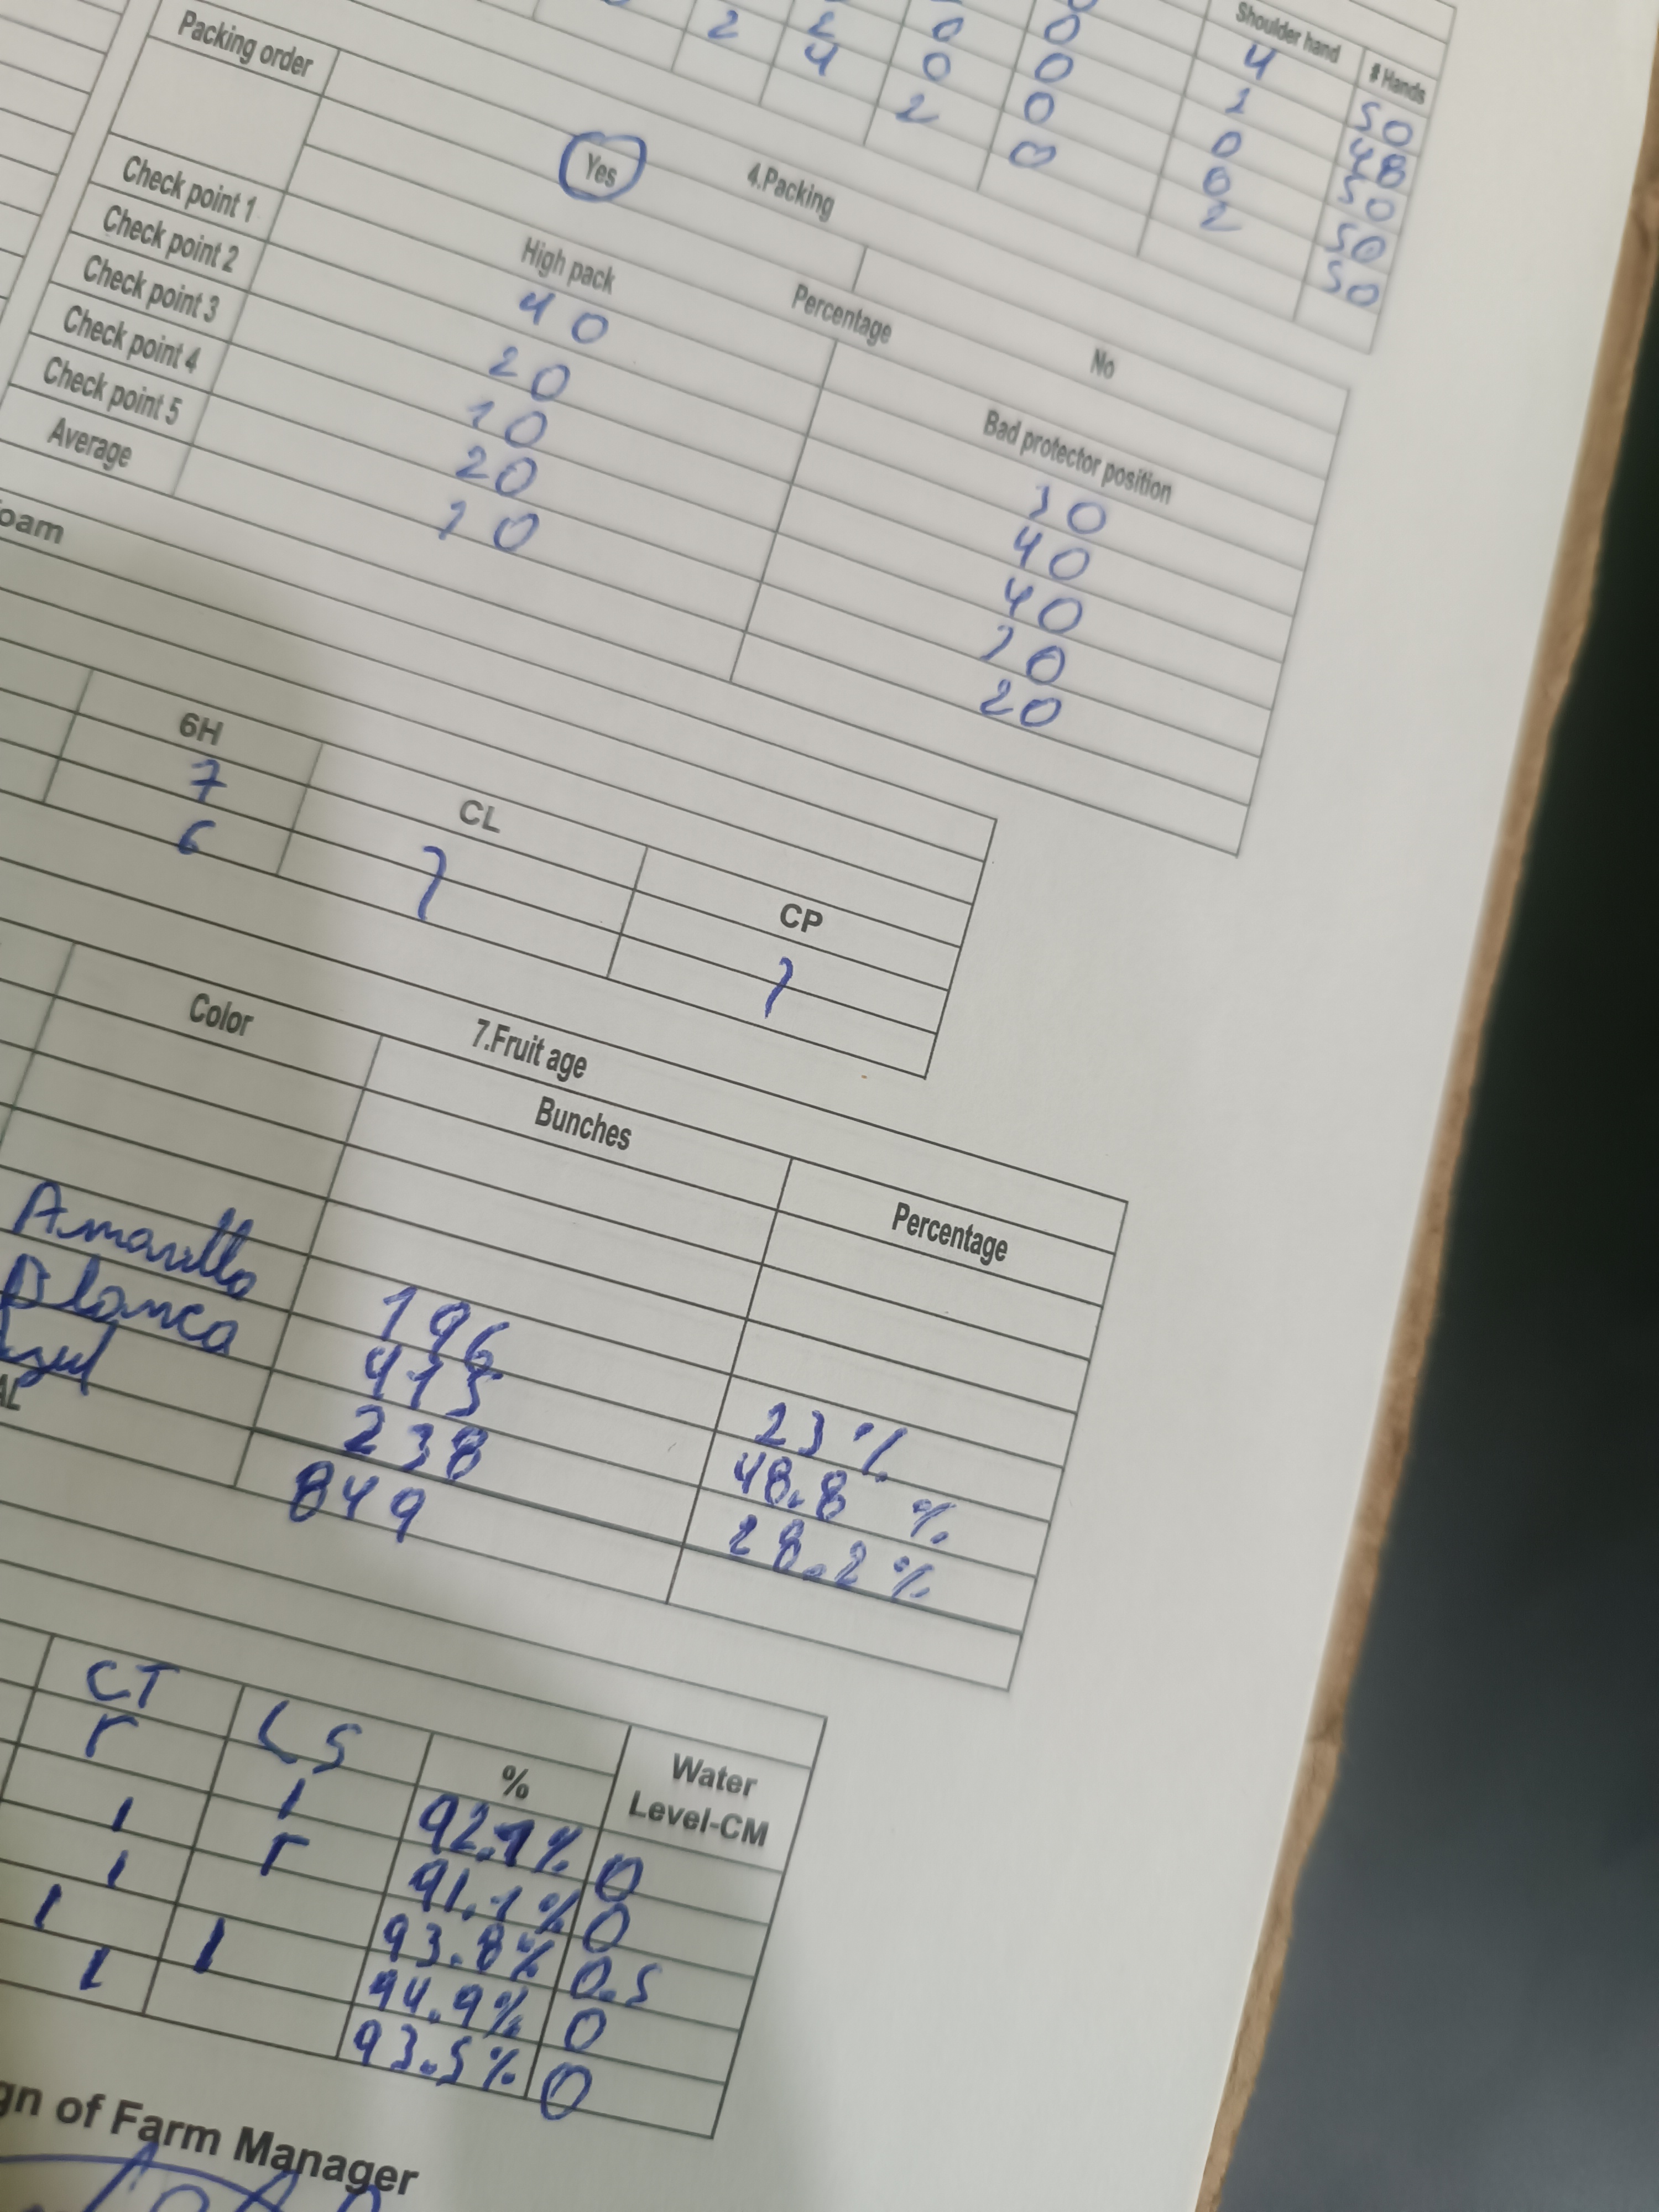 Shoulder hand # Hands
4 50
2 2 0 0 1 48
4 0 0 0 50
2 0 0 50
0 2 50
4.Packing
Packing order Yes No
Percentage
High pack Bad protector position
Check point 1 40 30
Check point 2 20 40
Check point 3 10 40
Check point 4 20
Check point 5 10 20
Average
oam
6H CL CP
7
6
7.Fruit age
Color Bunches Percentage
Amarillo 196 23%
Blanca 415 48.8 %
Azul 238 28.2%
AL 849
CT LS % Water Level-CM
r 1 92.1% 0
1 r 91.1% 0
1 93.8% 0.5
1 1 94.9% 0
1 93.5% 0
gn of Farm Manager